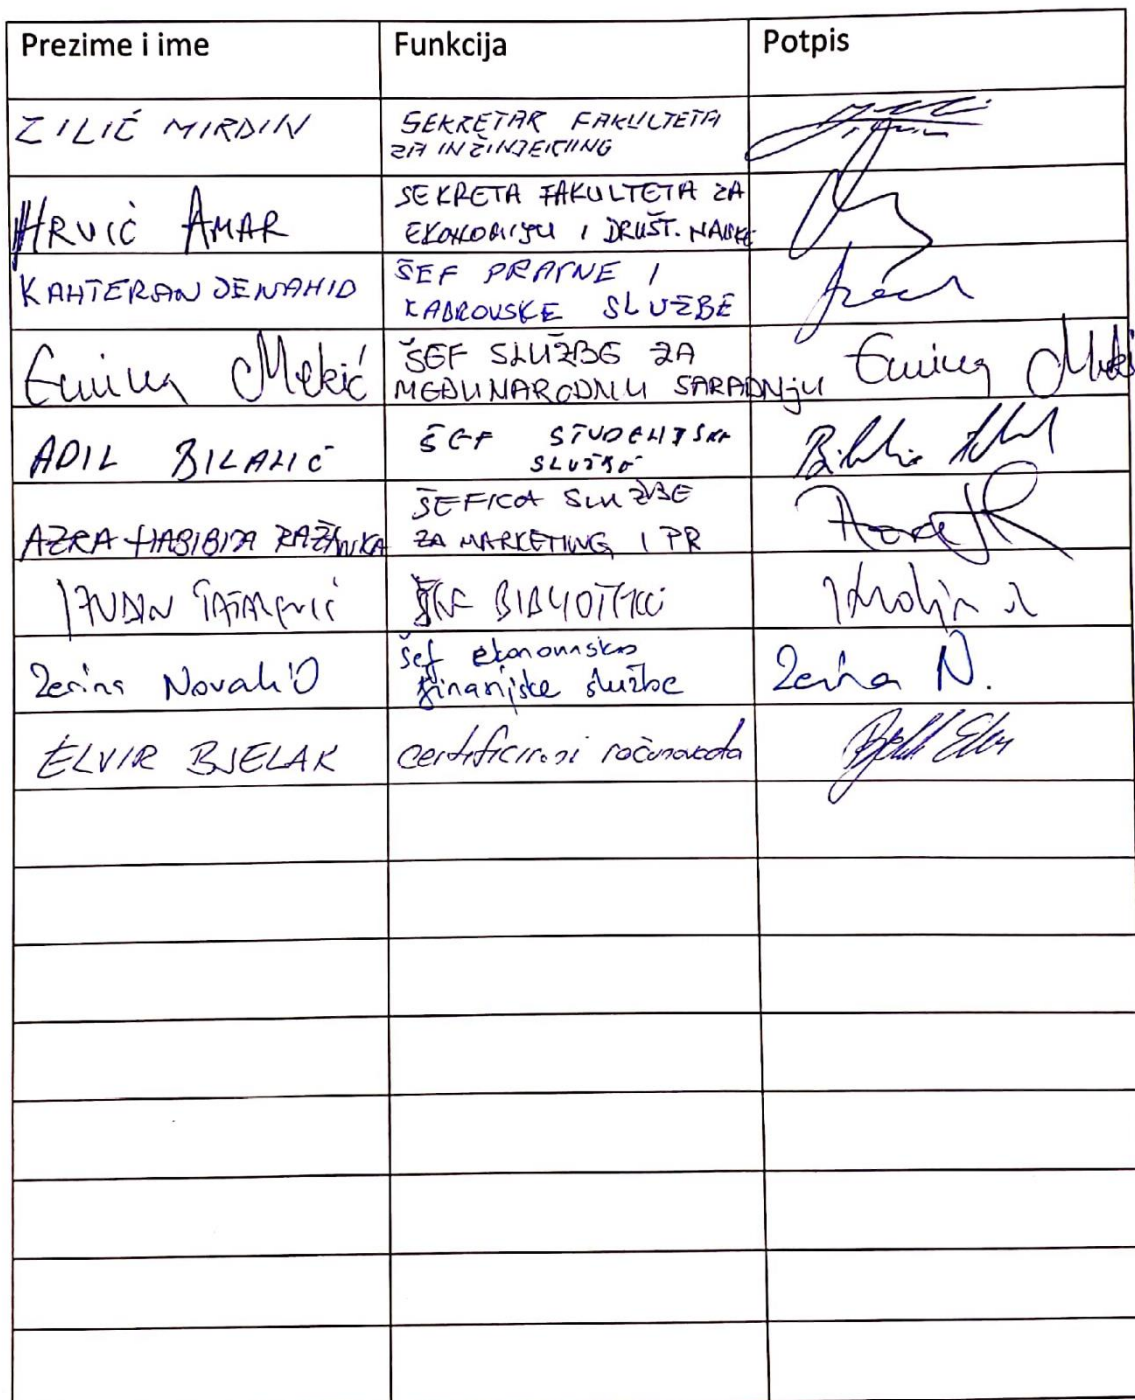 Prezime i ime Funkcija Potpis
ZILIĆ MIRDIN SEKRETAR FAKULTETA
ZA INŽINJERING
HRVIĆ AMAR SEKRETA FAKULTETA ZA
EKONOMIJU I DRUŠT. NAUKE
KAHTERAN DENAHID ŠEF PRAVNE I
KADROVSKE SLUŽBE
Emina Mekić ŠEF SLUŽBE ZA Emina Mekić
MEĐUNARODNU SARADNJU
ADIL BILALIĆ ŠEF STUDENTSKE
SLUŽBE
ŠEFICA SLUŽBE
AZRA HABIBIJA RAŽANICA ZA MARKETING I PR
ŠEF BIBLIOTEKE
Zerina Novalić šef ekonomsko Zerina N.
finansijske službe
ELVIR BJELAK certificirani računovođa